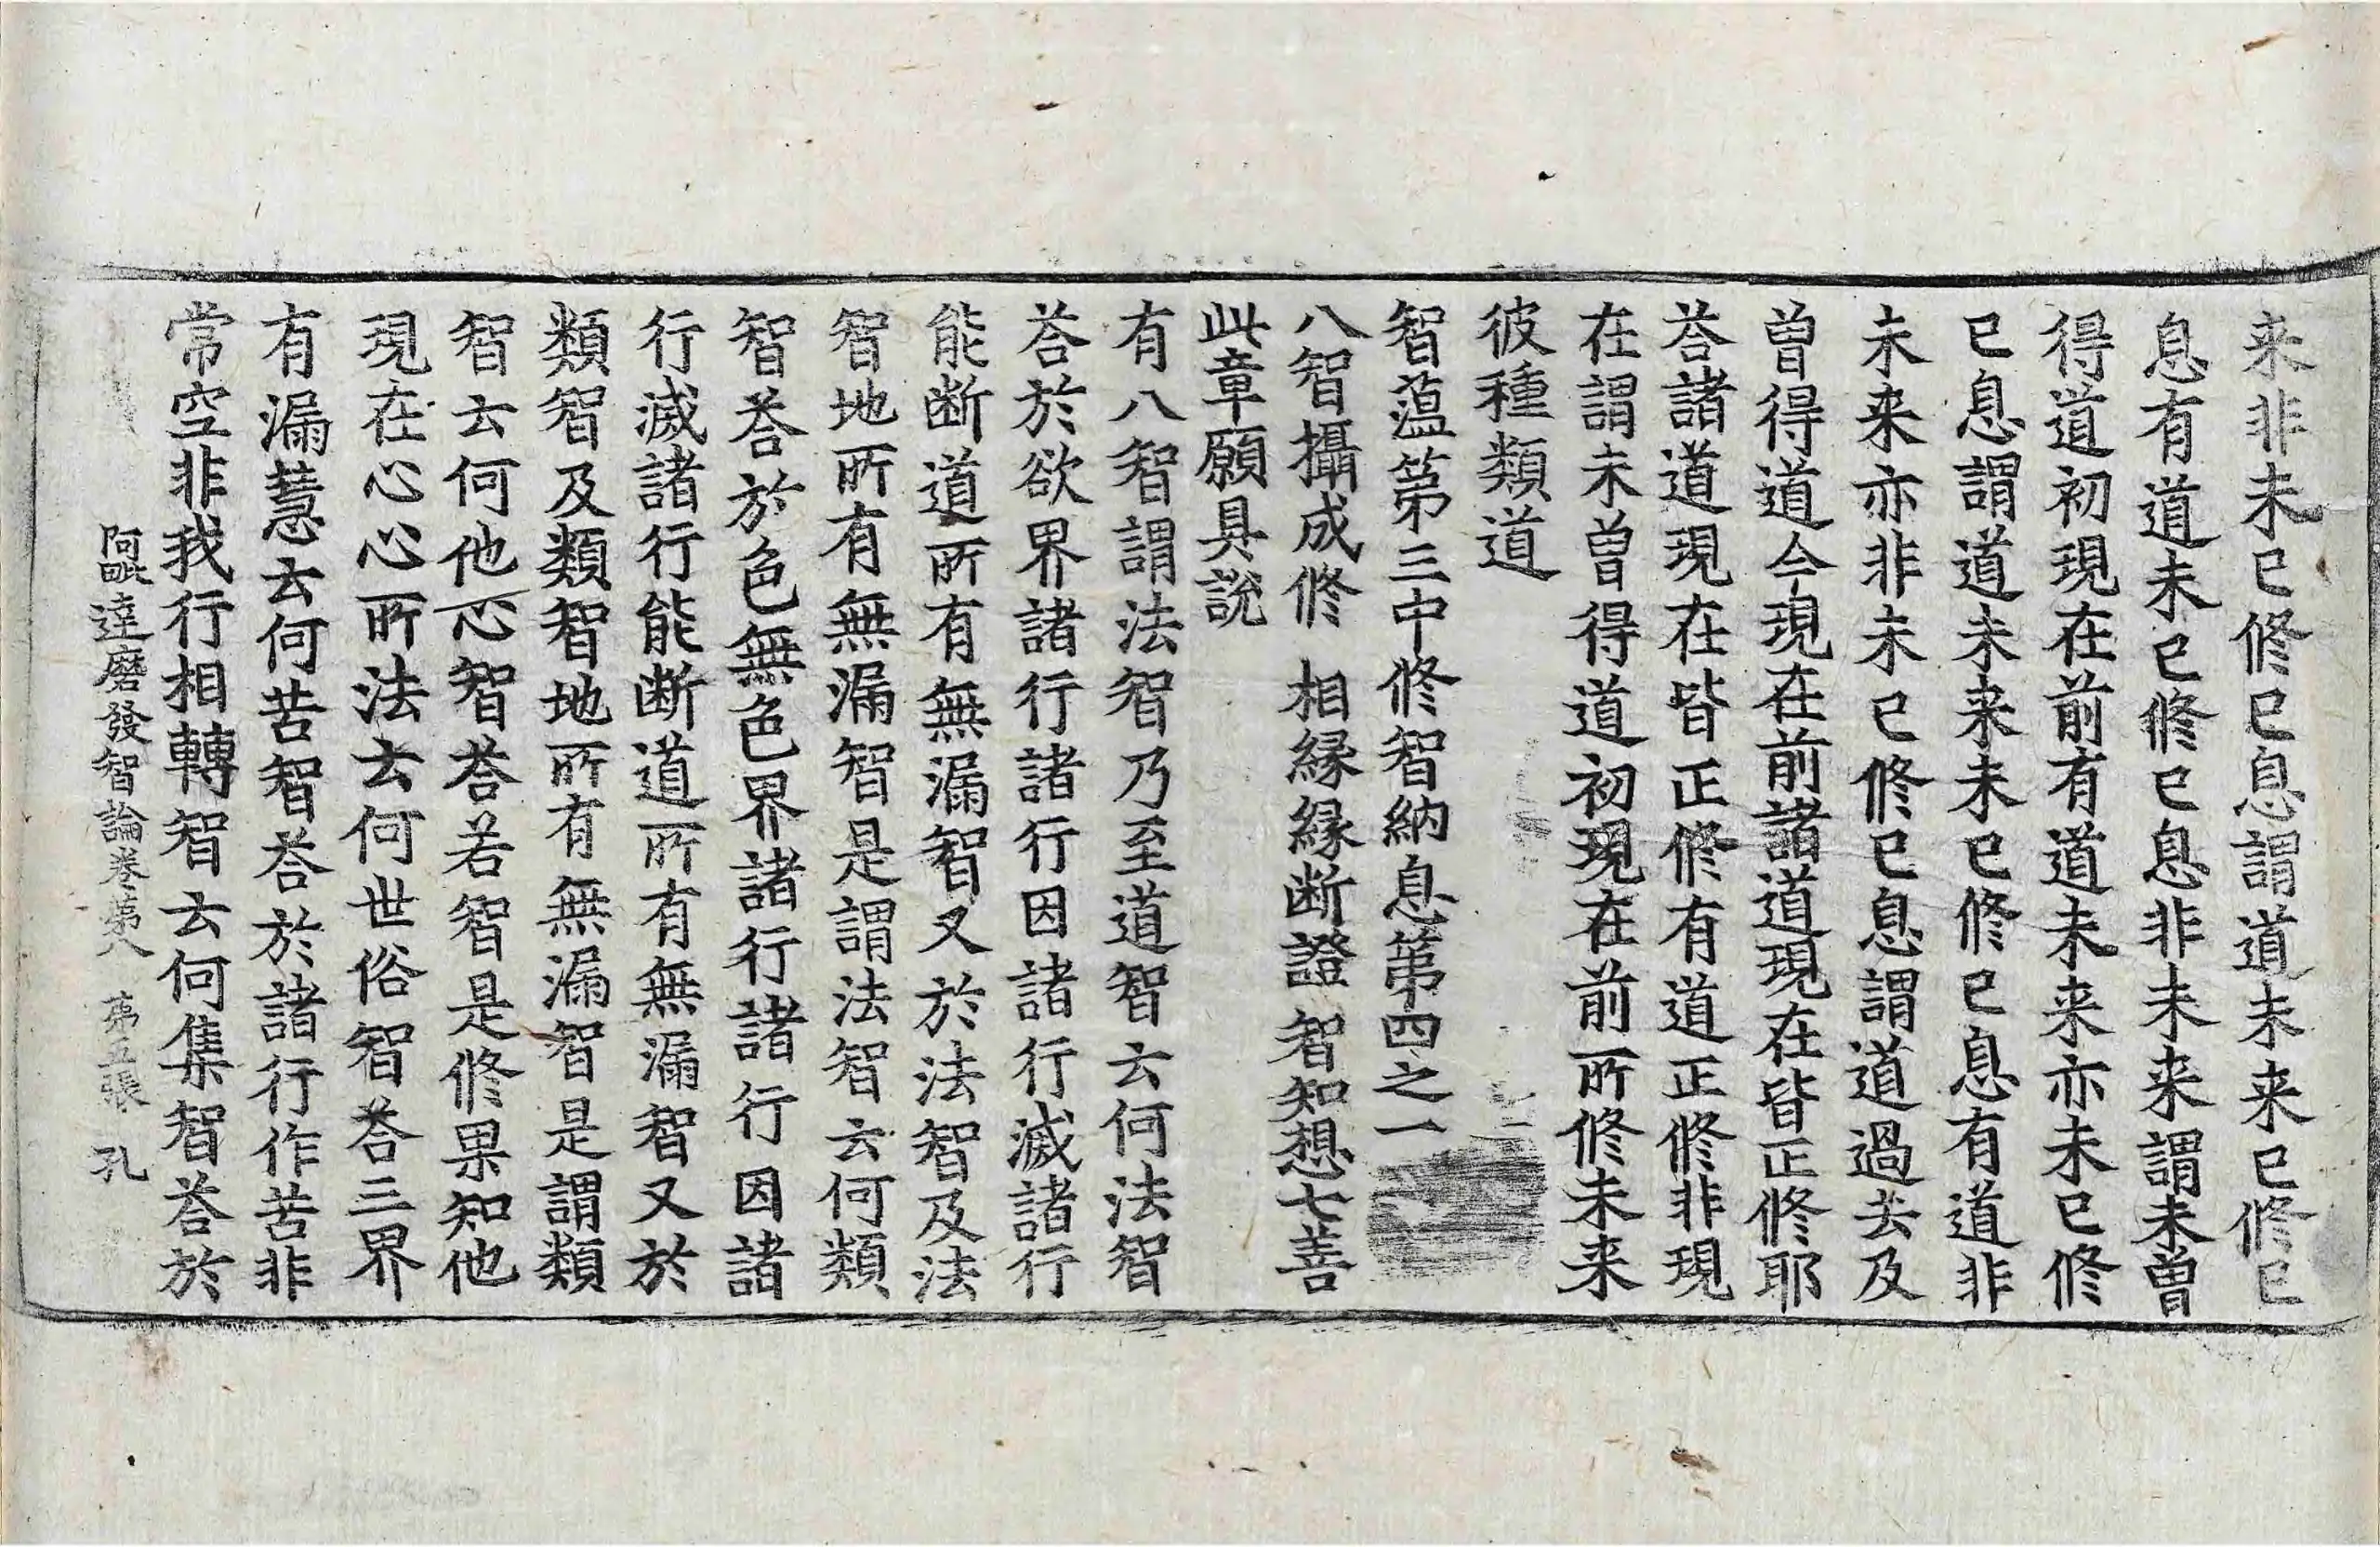 来非未已修已息謂道未来已修已
息有道未已修已息非未来謂未曾
得道初現在前有道未来亦未已修
已息謂道未来未已修已息有道非
未来亦非未已修已息謂道過去及
曾得道今現在前諸道現在皆正修耶
荅諸道現在皆正修有道正修非現
在謂未曾得道初現在前所修未来
彼種類道
智蕰第三中修智納息第四之一
八智攝成修 相縁縁断證 智知想七善
此章願具說
有八智謂法智乃至道智云何法智
荅於欲界諸行諸行因諸行滅諸行
能断道所有無漏智又於法智及法
智地所有無漏智是謂法智云何類
智荅於色無色界諸行諸行因諸
行滅諸行能断道所有無漏智又於
類智及類智地所有無漏智是謂類
智云何他心智荅若智是修果知他
現在心心所法云何世俗智荅三界
有漏慧云何苦智荅於諸行作苦非
常空非我行相轉智云何集智荅於
阿毗達磨發智論卷第八 第五張 孔